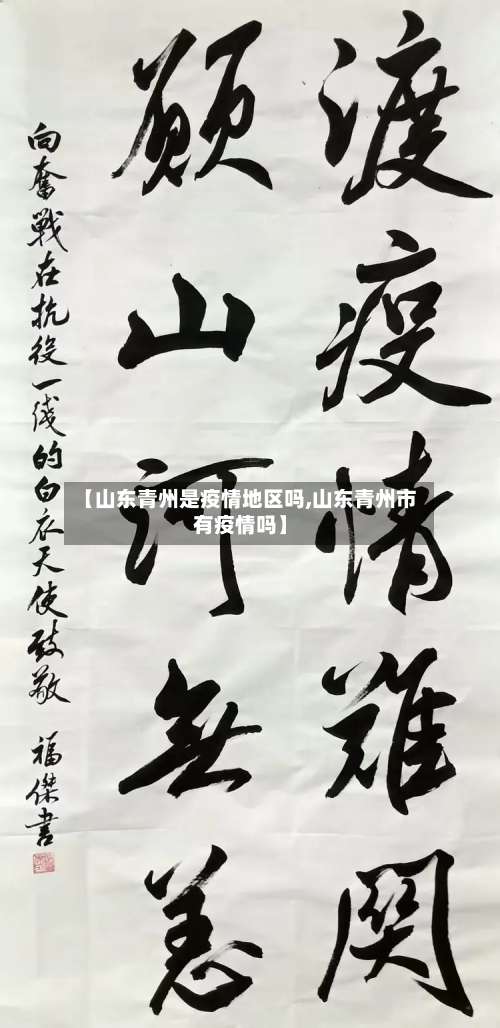 渡疫情難関
願山河無恙
向奮戰在抗疫一线的白衣天使致敬 福傑書
【山东青州是疫情地区吗,山东青州市
有疫情吗】